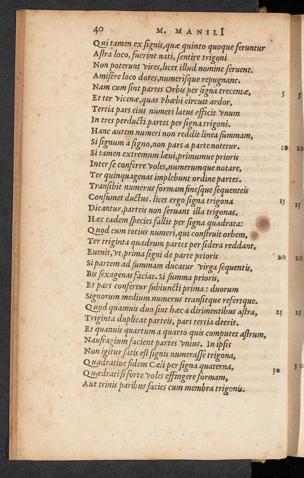 40 M. MANILI
Qui tamen ex signis, quæ quinto quoque feruntur
Astra loco, fuerint nati, sentire trigoni
Non poterunt vires, licet illud nomine seruent.
Amisere loco dotes, numerisque repugnant.
Nam cum sint partes Orbis per signa trecentæ, 5 10
Et ter vicenæ, quas Phœbi circuit ardor,
Tertia pars eius numeri latus efficit vnum
In tres perducti partes per signa trigoni.
Hanc autem numeri non reddit linea summam,
Si signum à signo, non pars à parte notetur. 10
Si tamen extremum læui, primumque prioris
Inter se conferre voles, numerumque notare,
Ter quinquagenas implebunt ordine partes.
Transibit numerus formam finesque sequenteis
Consumet ductus. licet ergo signa trigona 15 15
Dicantur, parteis non seruant illa trigonas.
Hæc eadem species fallit per signa quadrata:
Quod cum totius numeri, qui construit orbem,
Ter triginta quadrum partes per sidera reddant,
Euenit, vt, prima signi de parte prioris 20 20
Si partem ad summam ducatur virga sequentis,
Bis sexagenas faciat. Si summa prioris,
Et pars confertur subiuncti prima: duorum
Signorum medium numerus transitque refertque.
Quod quamuis duo sint hæc à dirimentibus astra, 25 25
Triginta duplicat parteis, pars tertia deerit.
Et quamuis quartum a quarto quis computet astrum,
Naufragium facient partes vnius. In ipsis
Non igitur satis est signis numerasse trigona,
Quadratiue fidem Cæli per signa quaterna, 30
Quadrati si forte voles effingere formam,
Aut trinis paribus facies cum membra trigonis.